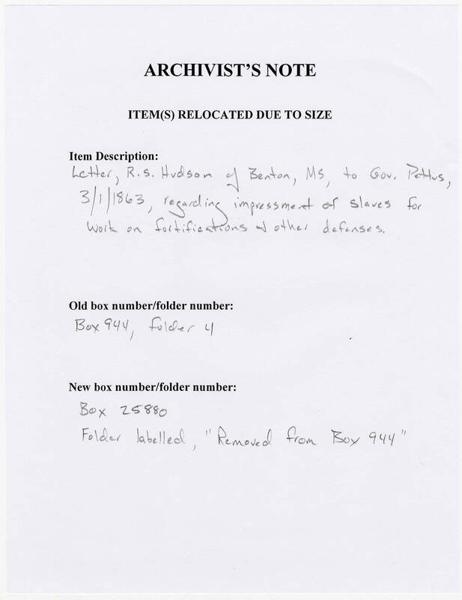 ARCHIVIST'S NOTE
ITEM(S) RELOCATED DUE TO SIZE
Item Description:
Letter, R.S. Hudson of Benton, MS, to Gov. Pettus,
3/1/1863, regarding impressment of slaves for
work on fortifications & other defenses.
Old box number/folder number:
Box 944, folder 4
New box number/folder number:
Box 25880
Folder labelled, "Removed from Box 944"